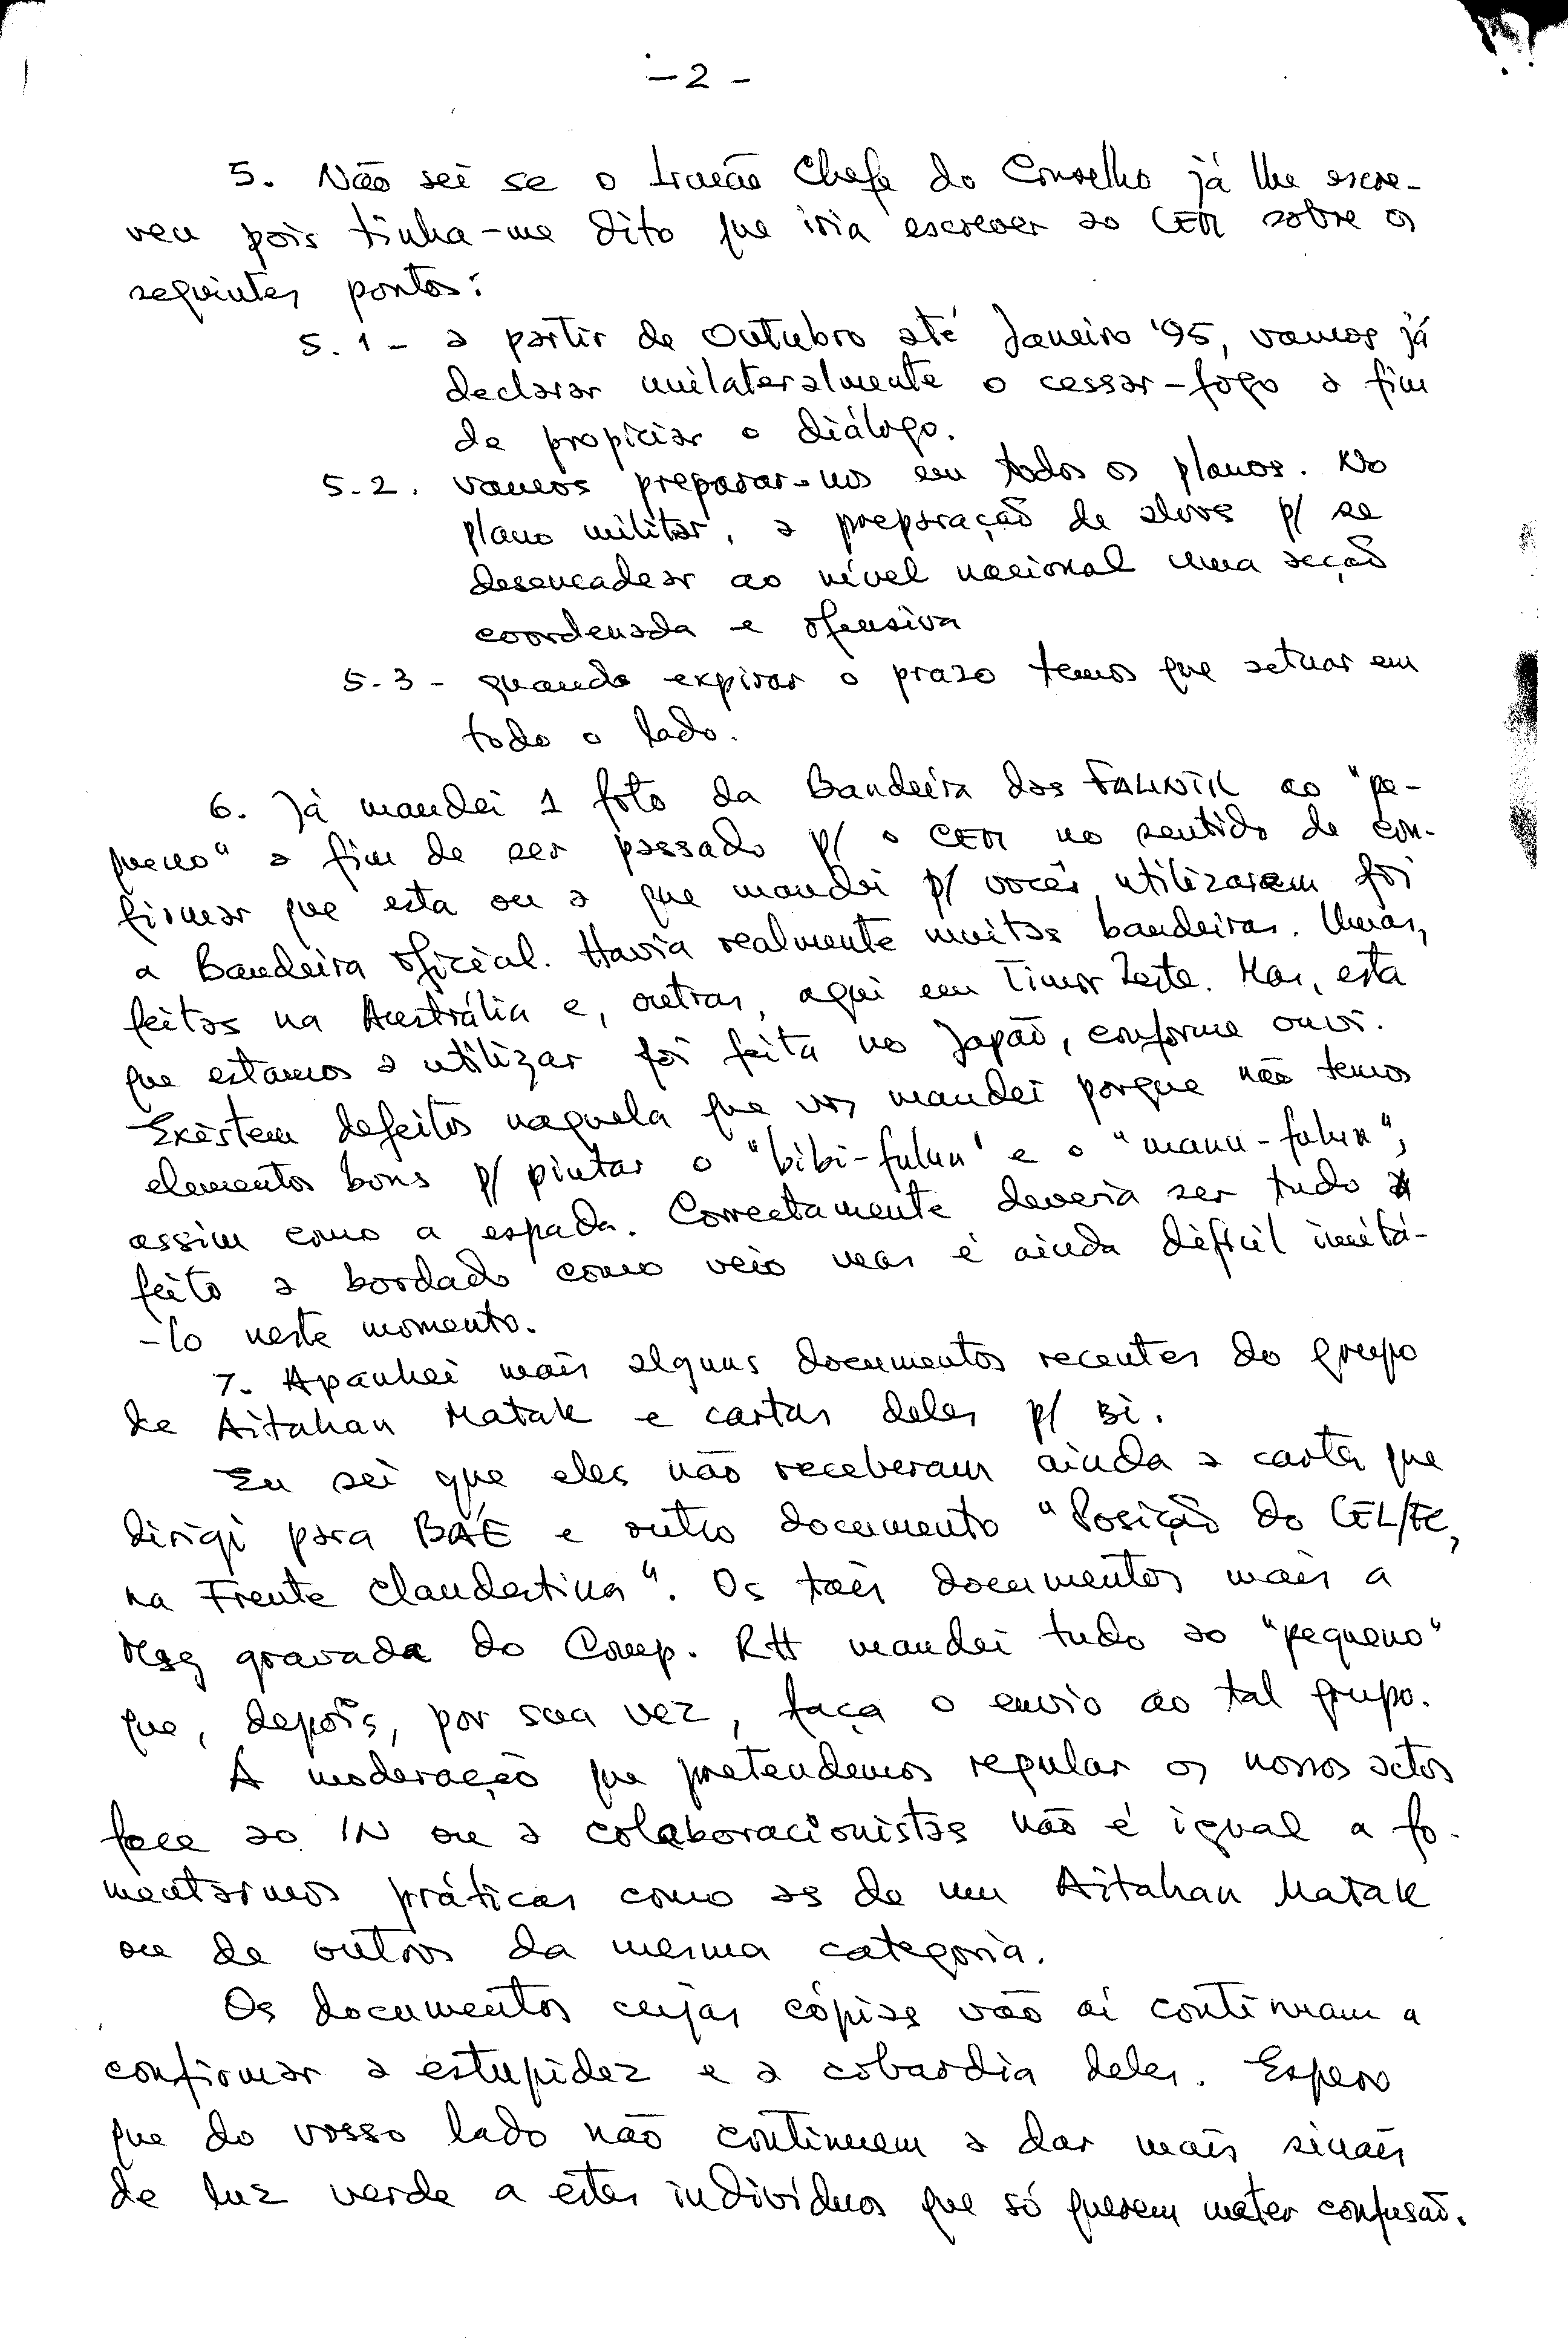 - 2 -
5. Não sei se o Irmão Chefe do Conselho já lhe escre-
veu pois tinha-me dito que iria escrever ao CEM sobre os
seguintes pontos:
5.1 - a partir de Outubro até Janeiro '95, vamos já
declarar unilateralmente o cessar-fogo a fim
de propiciar o diálogo.
5.2. vamos preparar-nos em todos os planos. No
plano militar, a preparação de alvos p/ se
desencadear ao nível nacional uma acção
coordenada e ofensiva
5.3 - quando expirar o prazo temos que actuar em
todo o lado.
6. Já mandei 1 foto da Bandeira das FALINTIL ao "pe-
queno" a fim de ser passado p/ o CEM no sentido de con-
firmar que esta ou a que mandei p/ vocês utilizarem foi
a Bandeira oficial. Havia realmente muitas bandeiras. Umas,
feitas na Austrália e, outras, aqui em Timor Leste. Mas, esta
que estamos a utilizar foi feita no Japão, conforme ouvi.
Existem defeitos naquela que vos mandei porque não temos
elementos bons p/ pintar o "bibi-fulun" e o "manu-fulun",
assim como a espada. Correctamente deveria ser tudo
feito a bordado como veio mas é ainda difícil imitá-
-lo neste momento.
7. Apanhei mais alguns documentos recentes do grupo
de Aitahan Matak e cartas deles p/ si.
Eu sei que eles não receberam ainda a carta que
dirigi para BAÉ e outro documento "Posição do CEL/FC,
na Frente Clandestina". Os tais documentos mais a
Msg gravada do Comp. RH mandei tudo ao "pequeno"
que, depois, por sua vez, faça o envio ao tal grupo.
A moderação que pretendemos regular os nossos actos
face ao IN ou a colaboracionistas não é igual a fo-
mentarmos práticas como as de um Aitahan Matak
ou de outros da mesma categoria.
Os documentos cujas cópias vão aí continuam a
confirmar a estupidez e a cobardia deles. Espero
que do vosso lado não continuem a dar mais sinais
de luz verde a estes indivíduos que só querem meter confusão.